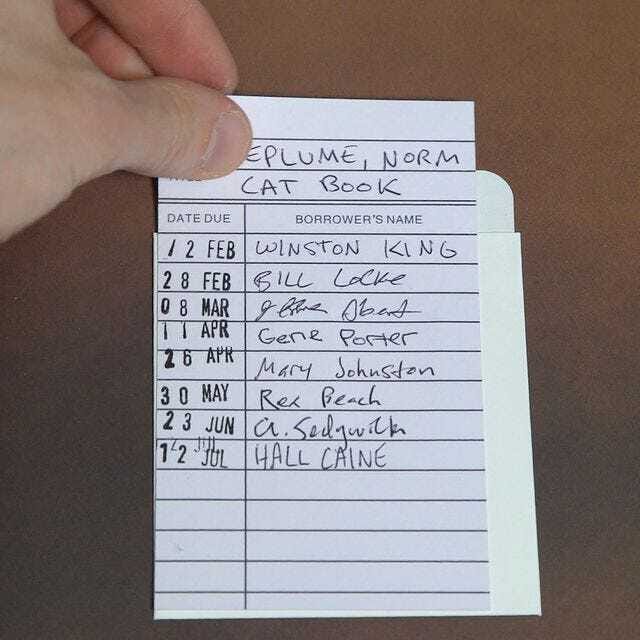 EPLUME, NORM
CAT BOOK
DATE DUE BORROWER'S NAME
12 FEB WINSTON KING
28 FEB BILL Locke
08 MAR
11 APR Gene Porter
26 APR Mary Johnston
30 MAY Rex Beach
23 JUN A. Sedgwick
JUL HALL CAINE